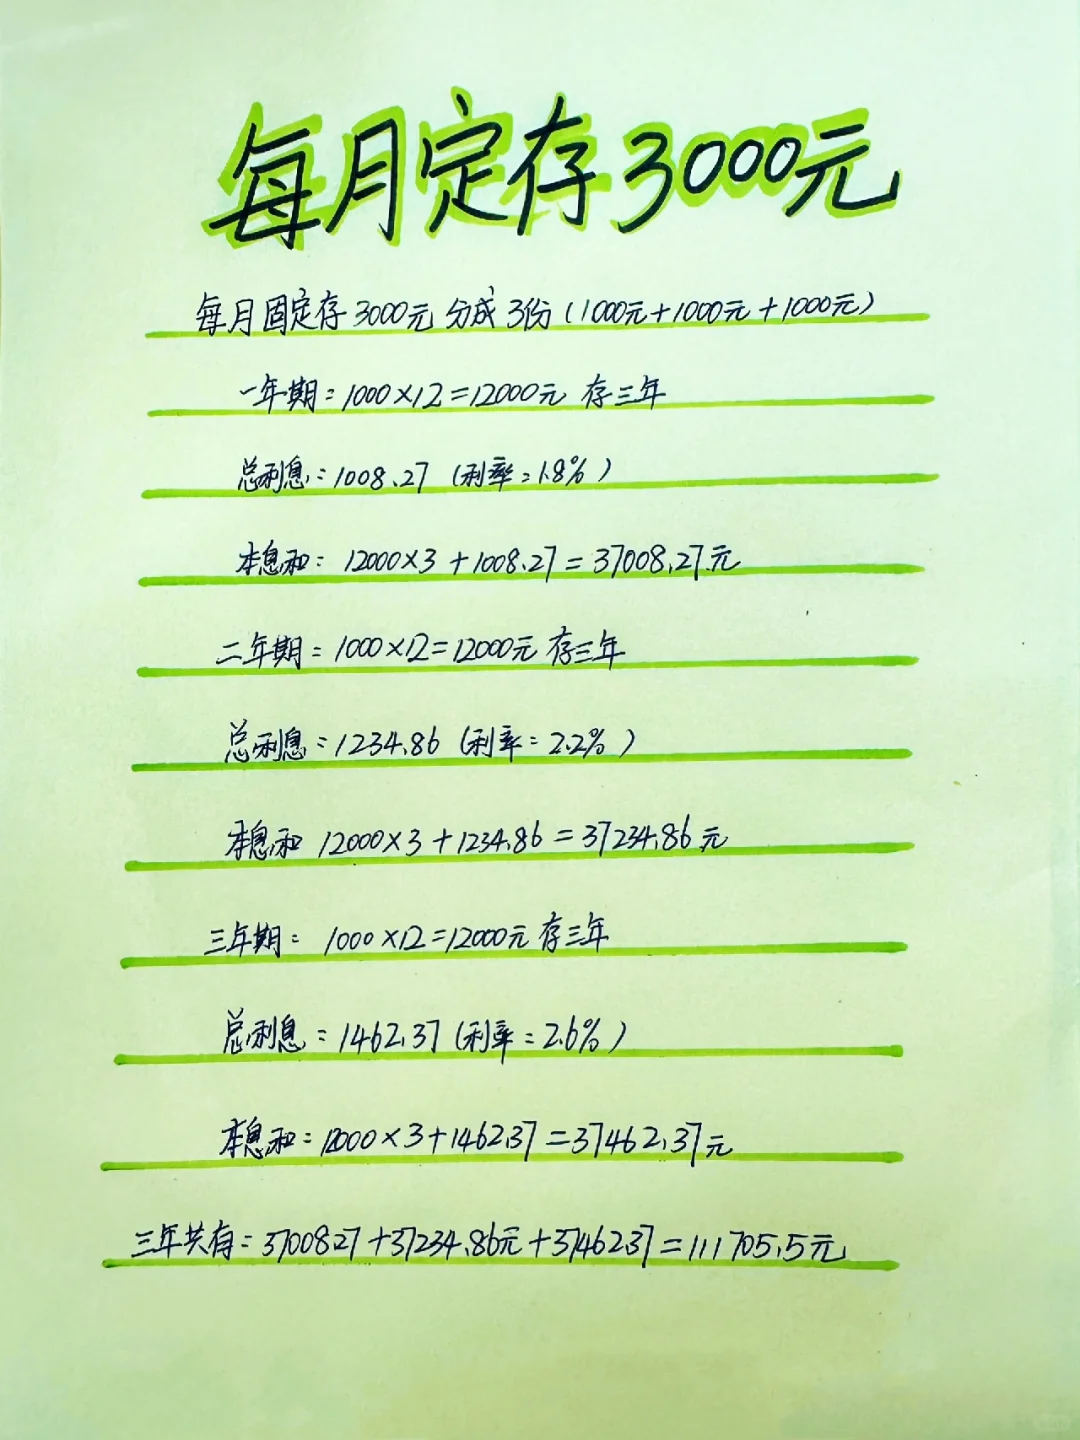 每月定存3000元
每月固定存3000元 分成3份(1000元+1000元+1000元)
一年期:1000×12=12000元 存三年
总利息:1008.27 (利率:1.8%)
本息和: 12000×3+1008.27=37008.27元
二年期:1000×12=12000元 存三年
总利息:1234.86 (利率:2.2%)
本息和 12000×3+1234.86=37234.86元
三年期: 1000×12=12000元 存三年
总利息:1462.37 (利率:2.6%)
本息和:12000×3+1462.37=37462.37元
三年共存:37008.27+37234.86元+37462.37=111705.5元